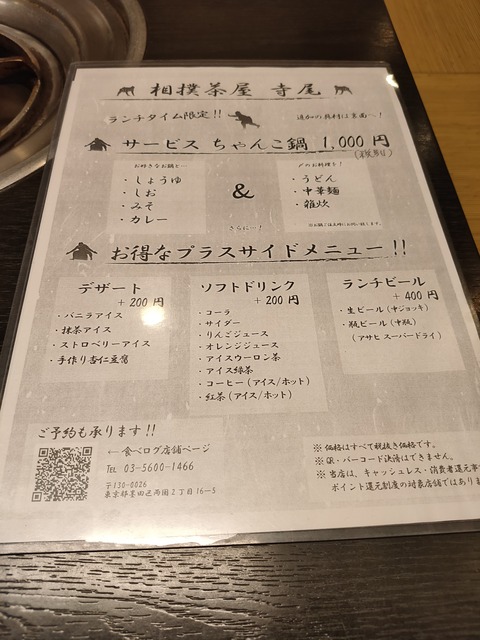 相撲茶屋 寺尾
ランチタイム限定!!
追加の具材は裏面へ!
サービス ちゃんこ鍋 1,000 円
(税別)
お好きなお鍋と…
・しょうゆ
・しお
・みそ
・カレー
&
〆のお料理を!
・うどん
・中華麺
・雑炊
さらに…!
お得なプラスサイドメニュー!!
デザート
+200 円
・バニラアイス
・抹茶アイス
・ストロベリーアイス
・手作り杏仁豆腐
ソフトドリンク
+200 円
・コーラ
・サイダー
・りんごジュース
・オレンジジュース
・アイスウーロン茶
・アイス緑茶
・コーヒー(アイス/ホット)
・紅茶(アイス/ホット)
ランチビール
+400 円
・生ビール(中ジョッキ)
・瓶ビール(中瓶)
(アサヒ スーパードライ)
ご予約も承ります!!
← 食べログ店舗ページ
TEL 03-5600-1466
〒130-0026
東京都墨田区両国2丁目16-5
※ 価格はすべて税抜き価格です。
※ QR・バーコード決済はできません。
※ 当店は、キャッシュレス・消費者還元事
ポイント還元制度の対象店舗ではありま